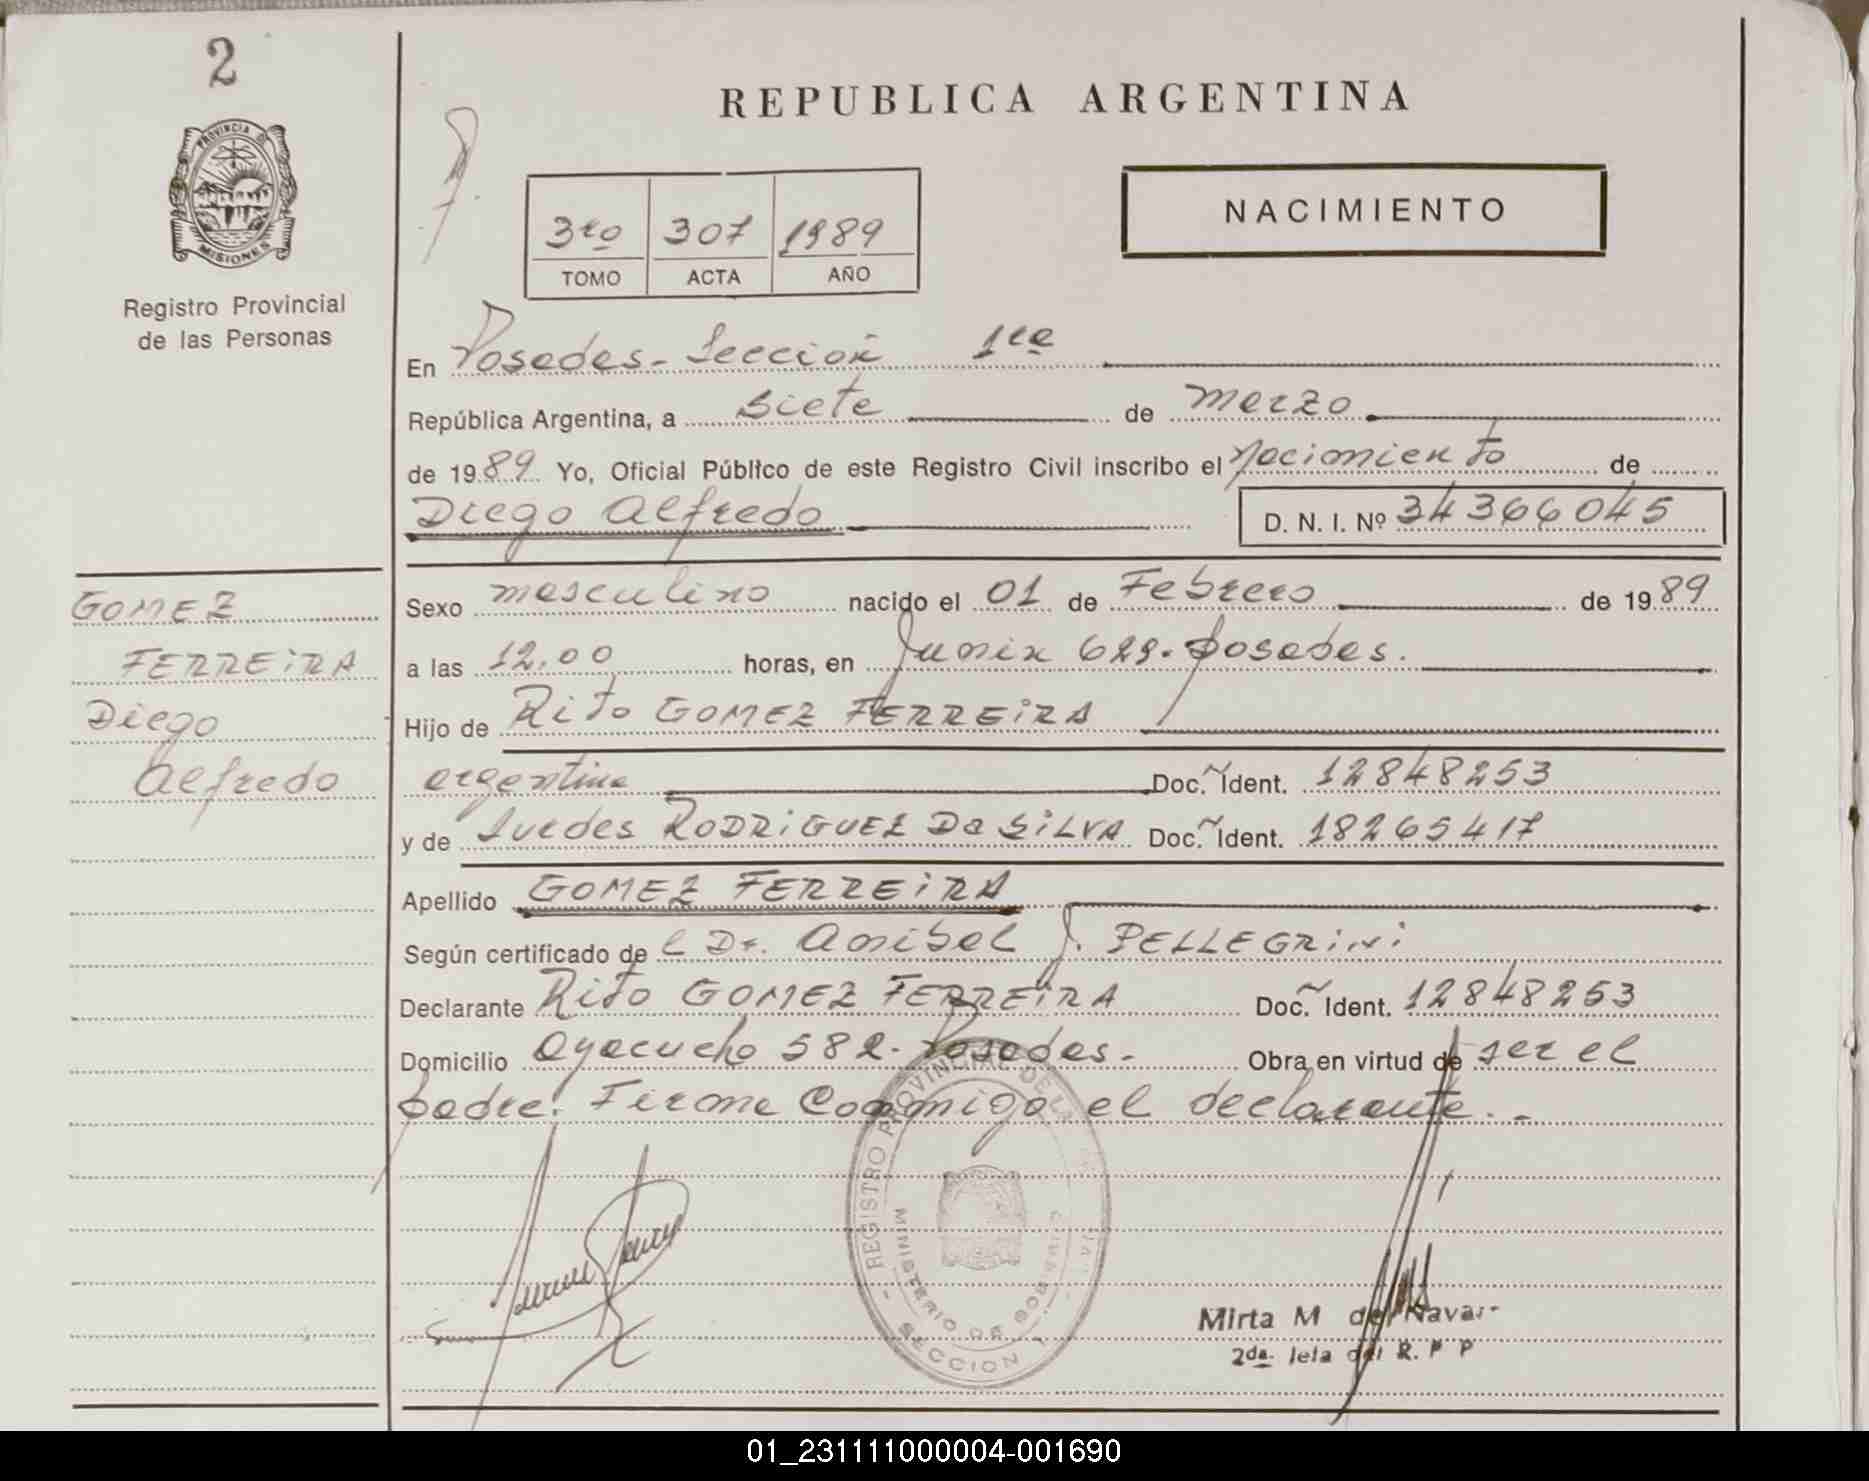 2
PROVINCIA D
MISIONES
Registro Provincial
de las Personas
GOMEZ
FERREIRA
Diego
Alfredo
REPUBLICA ARGENTINA
3ro 307 1989
TOMO ACTA AÑO
NACIMIENTO
En Posadas - Sección 1ra
República Argentina, a siete de marzo
de 1989 Yo, Oficial Público de este Registro Civil inscribo el Nacimiento de
Diego Alfredo D. N. I. Nº 34366045
Sexo masculino nacido el 01 de Febrero de 1989
a las 12.00 horas, en Junin 629. Posadas.
Hijo de Rito GOMEZ FERREIRA
argentina Doc. Ident. 12848253
y de Lurdes RODRIGUEZ Da SILVA Doc. Ident. 18265417
Apellido GOMEZ FERREIRA
Según certificado de l Dr. Anibal J. PELLEGRINI
Declarante Rito GOMEZ FERREIRA Doc. Ident. 12848253
Domicilio Ayacucho 582. Posadas. Obra en virtud de ser el
padre. Firma Conmigo el declarante. -
REGISTRO PROVINCIAL DE LA
MINISTERIO DE GOBIERNO
SECCION 1
Mirta M de
2da. Jefa del R. P P
01_231111000004-001690